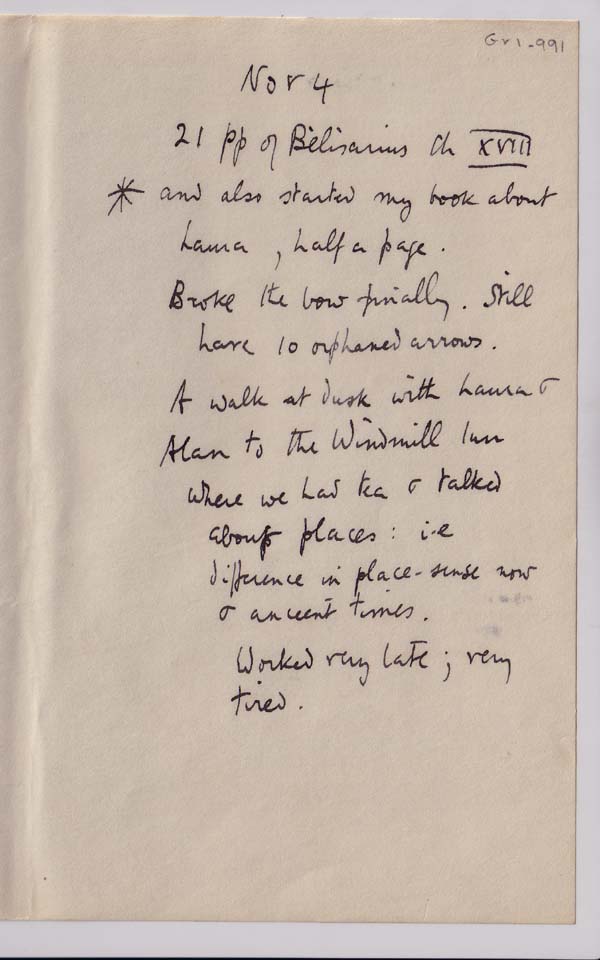 Gr1-991
Nov 4
21 pp of Belisarius Ch XVIII
* and also started my book about
Laura, half a page.
Broke the bow finally. Still
have 10 orphaned arrows.
A walk at dusk with Laura &
Alan to the Windmill Inn
where we had tea & talked
about places: i-e
difference in place-sense now
& ancient times.
Worked very late; very
tired.